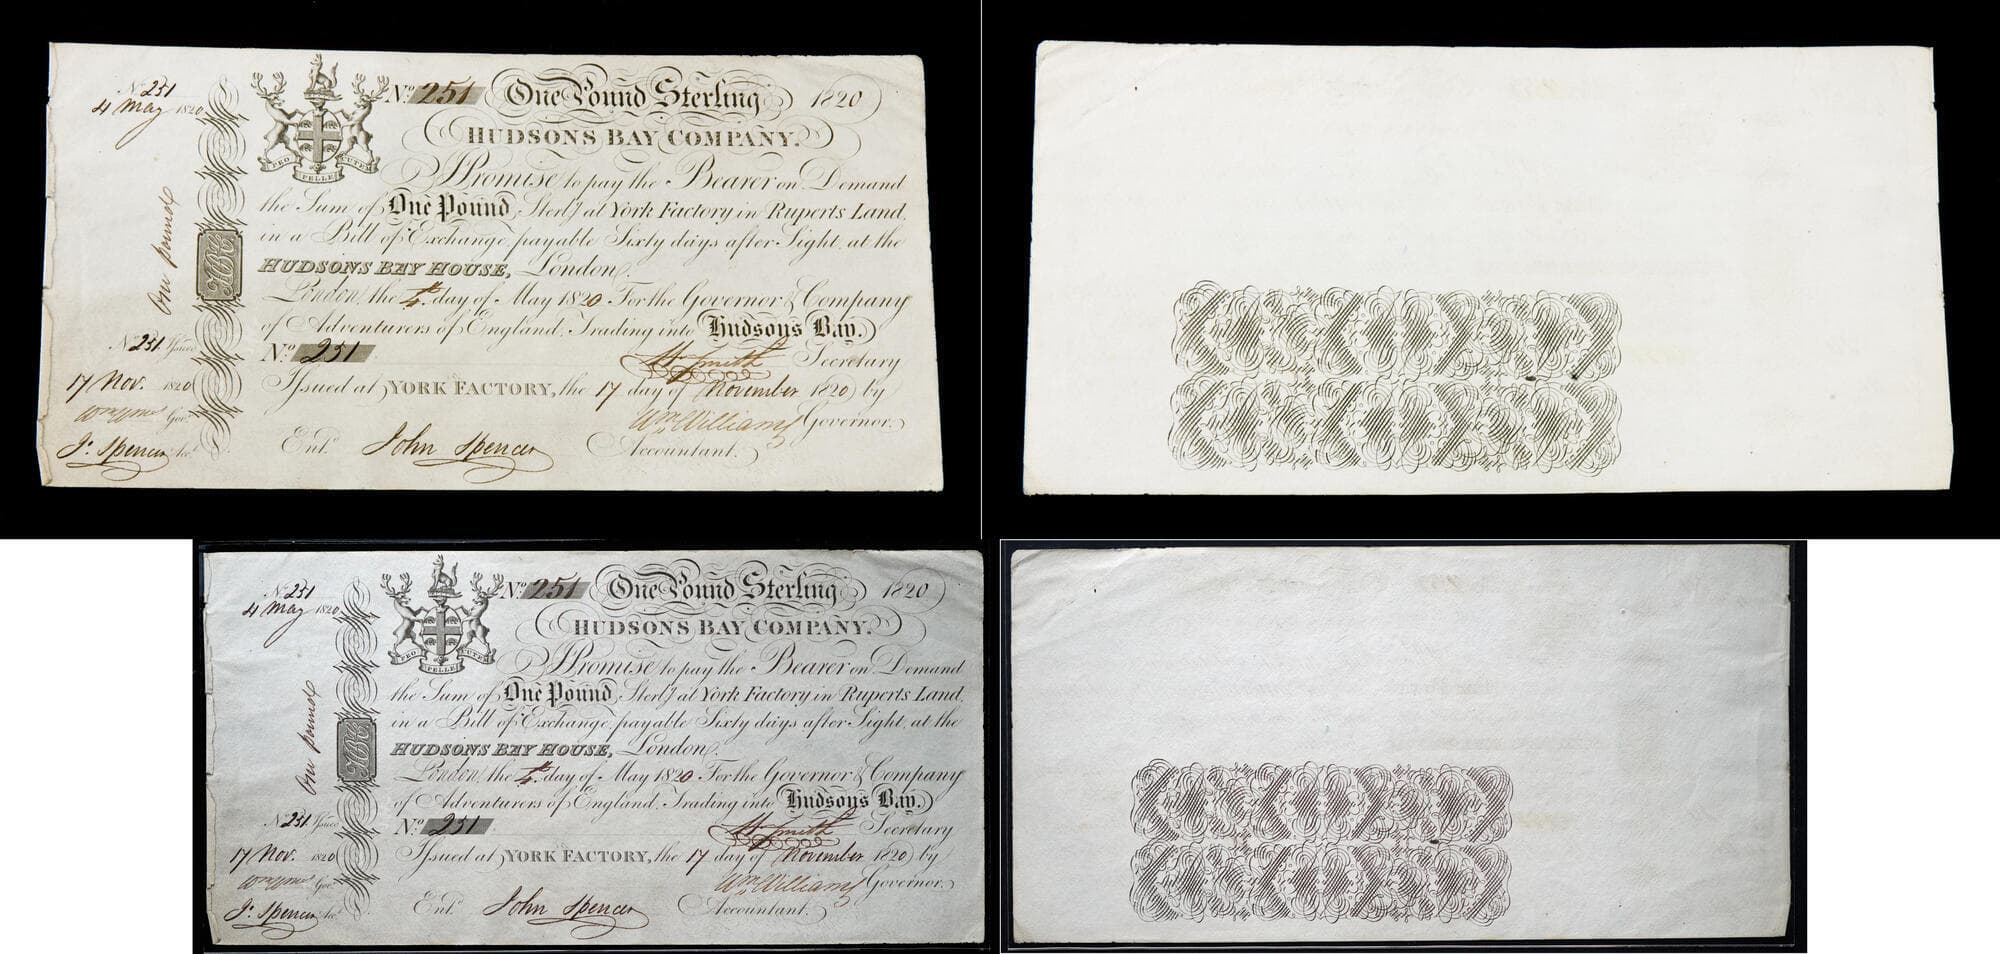 No 251
4 May 1820
One pound
No 251 Issued
17 Nov. 1820
Gov.r
Jn. Spencer Acct
HBC
PRO PELLE CUTEM
No. 251 One Pound Sterling 1820
HUDSONS BAY COMPANY.
I Promise to pay the Bearer on Demand
the Sum of One Pound Sterlg at York Factory in Ruperts Land,
in a Bill of Exchange, payable Sixty days after Sight, at the
HUDSONS BAY HOUSE, London.
London, the 4th day of May 1820 For the Governor & Company
of Adventurers of England, Trading into Hudson's Bay.
No. 251 W Smith Secretary
Issued at YORK FACTORY, the 17 day of November 1820 by
Wm Williams Governor.
Entd. John Spencer Accountant.
No 251
4 May 1820
One pound
No 251 Issued
17 Nov. 1820
Gov.r
Jn. Spencer Acct
HBC
PRO PELLE CUTEM
No. 251 One Pound Sterling 1820
HUDSONS BAY COMPANY.
I Promise to pay the Bearer on Demand
the Sum of One Pound Sterlg at York Factory in Ruperts Land,
in a Bill of Exchange, payable Sixty days after Sight, at the
HUDSONS BAY HOUSE, London.
London, the 4th day of May 1820 For the Governor & Company
of Adventurers of England, Trading into Hudson's Bay.
No. 251 W Smith Secretary
Issued at YORK FACTORY, the 17 day of November 1820 by
Wm Williams Governor.
Entd. John Spencer Accountant.